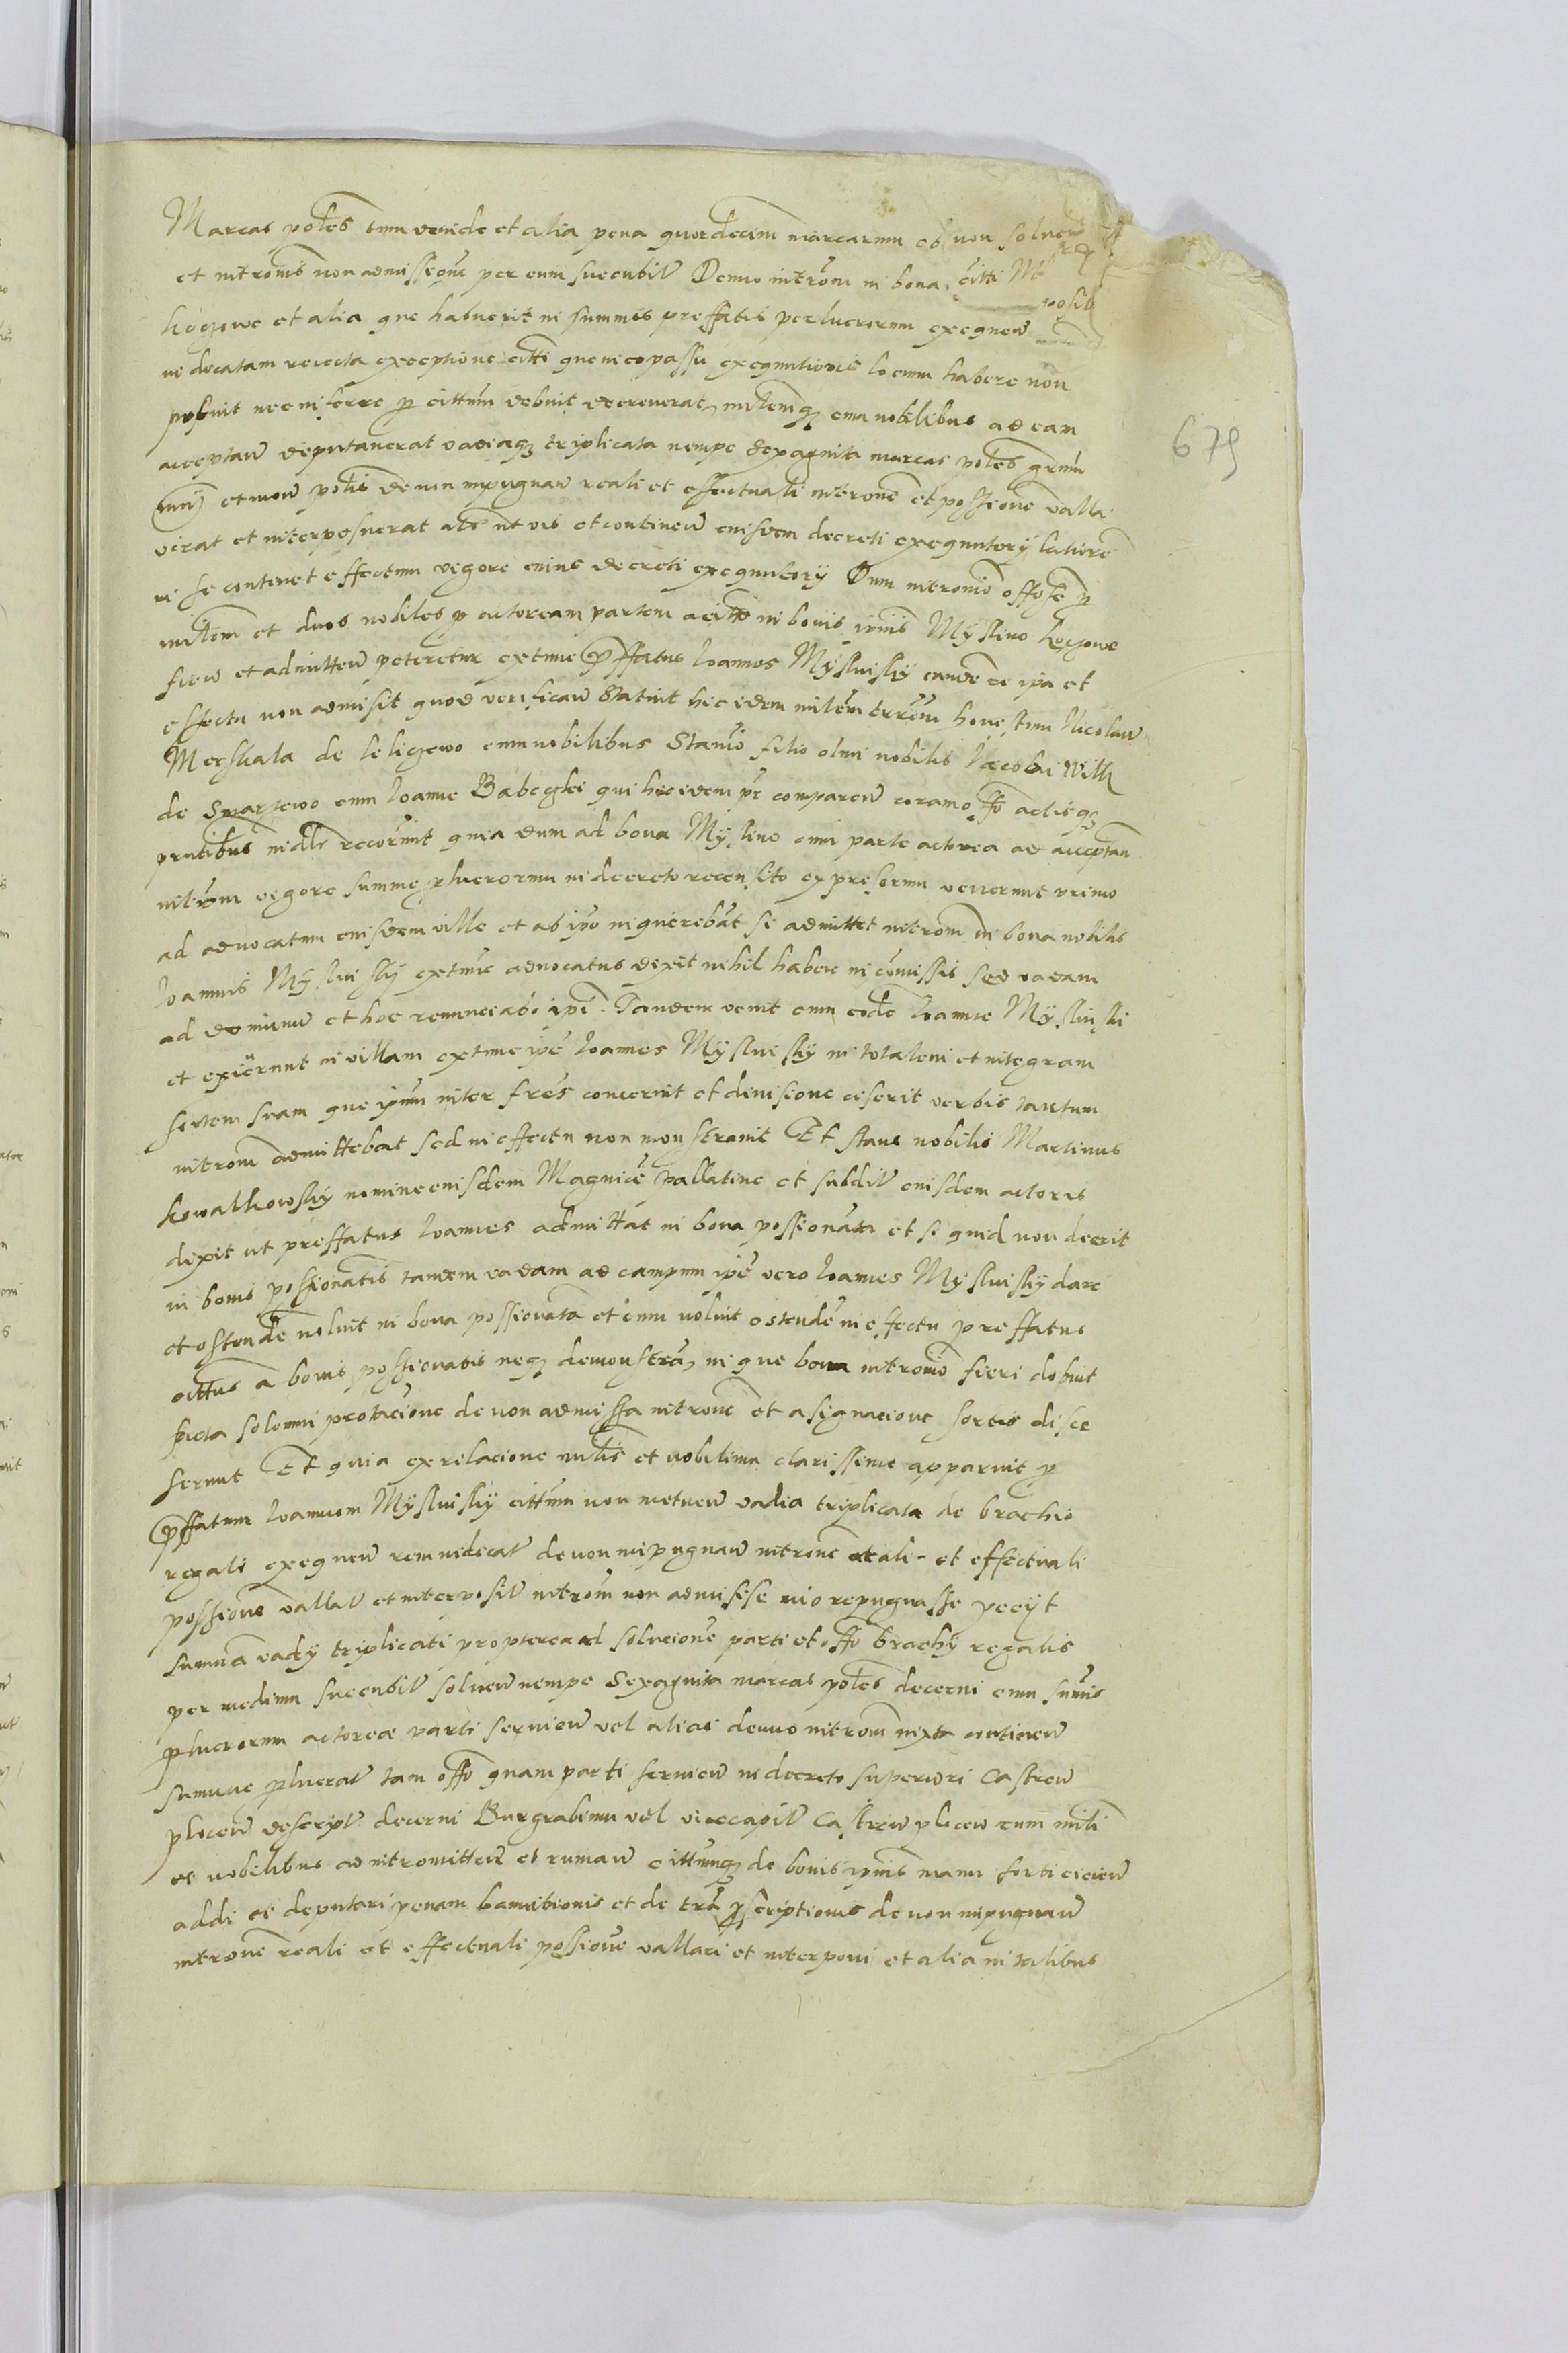 Marcas poles cum vvnde et alia pena quordecim marcarum ob non solucr
et introms non admissione per eum succubit Denuo introm in bona citti
kegowe et alia que habuerit in summis preffatis perlucrorum exequen posib
ne decatam reiecta exceptione citti que in eo passu exequutionis locum habere non
potuit nec inferre p cittum debuit decreverat militemq cum nobilibus ad eam
acceptan deputaverat vadiaq triplicata nempe sexaginta marcas poles
et mon polis de non inpugnan reali et effectuali introne et possione valla
verat et interposuerat alr ut vis et continen eiusdem decreti exequutory latiore
in se continet effectum vigore cuius decreti exequutorij Dum intromio offose p
militem et duos nobiles p actoream partem a citto in bonis ipius Myslino kegowe
fien et admitten peteretur extunc pffatus Ioannes Mysluisky eande re ipa et
effectu non admisit quod verifican statuit hic idem militem terrem honestum Nicolaum
Merskala de leligewo cum nobilibus Stanio filio olim nobilis Iacobi Wilk
de Smarzewo cum Ioanne Babeczki qui hic idem pr comparen coram offo actisq
prntibus medlr recorunt quia dum ad bona Myslino cum parte actorea ad acceptan
introm vigore summe plucrorum in decreto recensito expressorum venerunt primo
ad advocatum eiusdem ville et ab ipo inquirebat si admittet introm in bona nobilis
Ioannis Mysluisky extunc advocatus dixit nihil habere in comissis sed vadam
ad dominum et hoc renunciabo ipi Tandem venit cum eode Ioanne Mysluiski
et exierunt in villam extunc ipe Ioannes Mysluisky in totalem et integram
sortem suam que ipum inter fres concernit et divisione ceserit verbis tantum
introm admittebat sed in effectu non monstravit Et stans nobilis Martinus
kowalkowsky nomine eiusdem Magnice pallatine et subdit eiusdem actoris
dixit ut preffatus Ioannes admittat in bona possionata et si quid non deerit
in bonis possionatis tandem vadam ad campum ipe vero Ioannes Mysluisky dare
et ostende noluit in bona possionata et cum noluit ostende in effectu preffatus
cittus a bonis possionatis neq demonstra in que bona intromio fieri debuit
facta solemni protacione de non admissa introne et asignacione sortis disce
serunt Et quia ex relacione militis et nobilium clarissime apparuit p
pffatum Ioannem Mysluisky cittum non metuen vadia triplicata de brachio
regali exequen rem iudicat de non inpugnan introne reali et effectuali
possione vallat et interposit introm non admisise imo repugnasse pecijt
summa vadij triplicati propterea ad solucione parti et offo brachij regalis
per medium succubit soluen nempe Sexaginta marcas poles decerni cum sumis
plucrorum actoree parti servien vel alias denuo introm iuxta continen
summe plucrat tam offo quam parti servien in decreto superiori Castren
plocen descript decerni Burgrabium vel vicecapit Castren plocen cum militi
et nobilibus ad intromitten et ruman cittumq de bonis ipius manu forti eicien
addi et deputari penam bannitionis et de tra pscriptionis de non inpugnan
introne reali et effectuali possione vallari et interponi et alia in talibus
679